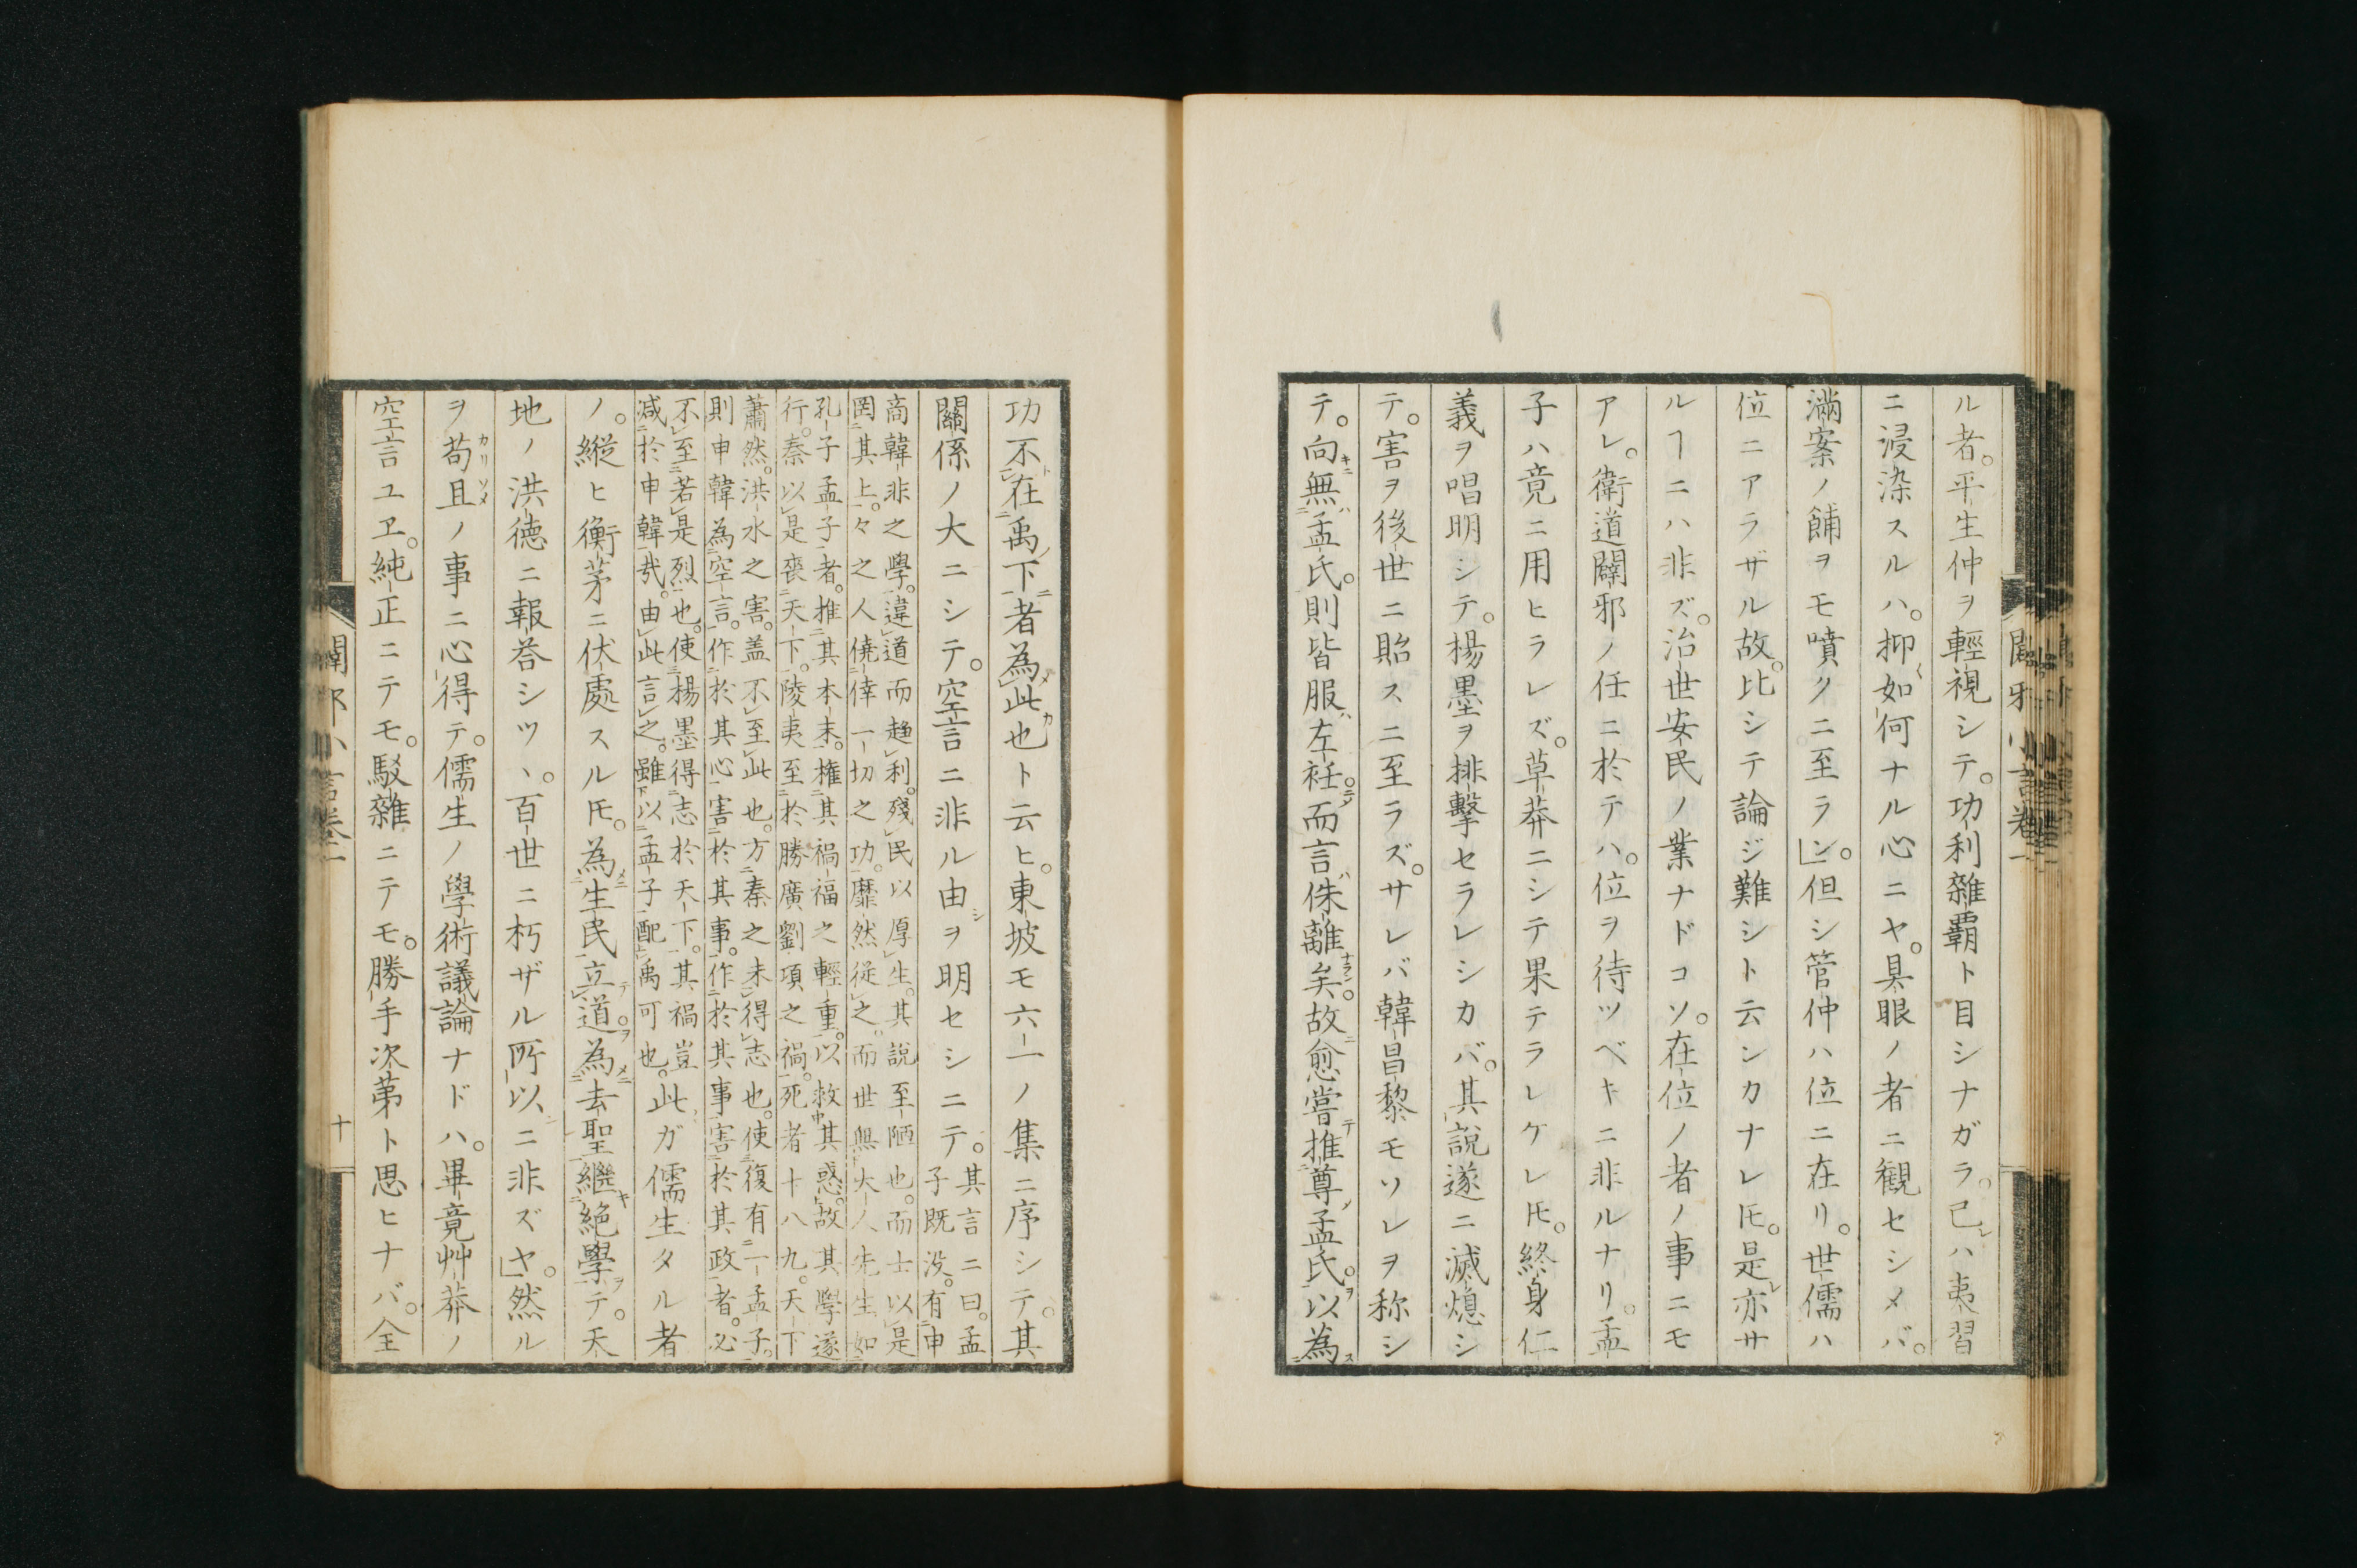 ル者。平生仲ヲ輕視シテ。功利雜覇ト目シナガラ。己レハ夷習
ニ浸染スルハ。抑〱如何ナル心ニヤ。具眼ノ者ニ観セシメバ。
滿案ノ餔ヲモ噴クニ至ラン。」但シ管仲ハ位ニ在リ。世儒ハ
位ニアラザル故。比シテ論ジ難シト云ンカナレ𪜈。是レ亦サ
ルヿニハ非ズ。治世安民ノ業ナドコソ。在位ノ者ノ事ニモ
アレ。衛道闢邪ノ任ニ於テハ。位ヲ待ツベキニ非ルナリ。孟
子ハ竟ニ用ヒラレズ。草莽ニシテ果テラレケレ𪜈。終身仁
義ヲ唱明シテ。楊墨ヲ排擊セラレシカバ。其說遂ニ滅熄シ
テ。害ヲ後世ニ貽スニ至ラズ。サレバ韓昌黎モソレヲ称シ
テ。向キニ無ハ孟氏。則皆服ハ左衽。而言ハ侏離ナラン矣。故ニ愈嘗テ推尊メ孟氏ヲ。以為ス
闢邪小言卷一
功不ト在禹ノ下ニ者為メ此カ也ト云ヒ。東坡モ六一ノ集ニ序シテ。其
關係ノ大ニシテ。空言ニ非ル由シヲ明セシニテ。其言ニ曰。孟
子既没。有申
商韓非之學。違道而趍利。殘民以厚生。其說至陋也。而士以是
罔其上。々之人僥倖一切之功。靡然從之。而世無大人先生如
孔子孟子者。推其本末。権其禍福之輕重。以救其惑。故其學遂
行。秦以是喪天下。陵夷至於勝廣劉項之禍。死者十八九。天下
蕭然。洪水之害。盖不至此也。方秦之未得志也。使復有一孟子。
則申韓為空言。作於其心害於其事。作於其事害於其政者。必
不至若是烈也。使楊墨得志於天下。其禍豈
減於申韓哉。由此言之。雖以孟子配禹可也。此ガ儒生タル者
ノ。縱ヒ衡茅ニ伏處スル𪜈。為メニ生民立テ道ヲ。為メニ去聖繼キ絶學ヲテ。天
地ノ洪德ニ報荅シツヽ。百世ニ朽ザル所以ニ非ズヤ。」然ル
ヲ苟且カリソメノ事ニ心得テ。儒生ノ學術議論ナドハ。畢竟艸莽ノ
空言ユヱ。純正ニテモ。駁雜ニテモ。勝手次第ト思ヒナバ。全
闢邪小言卷一
十